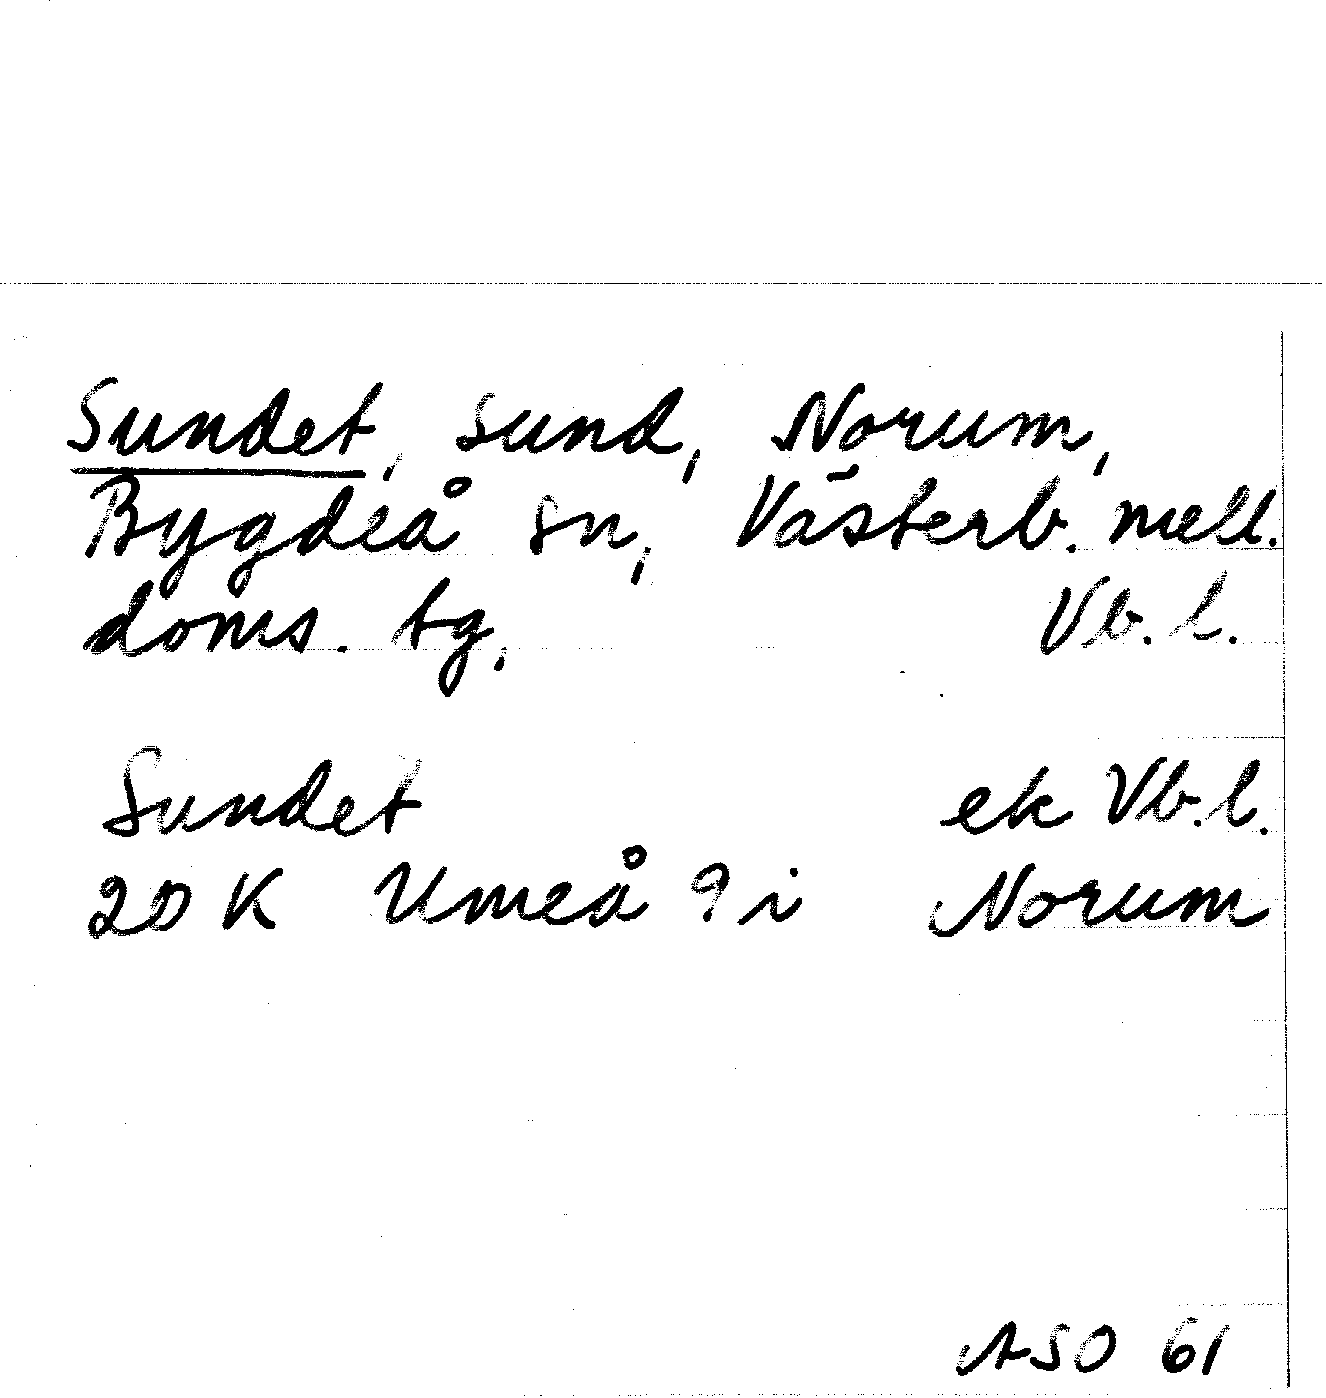 Sundet, sund, Norum,
Bygdeå sn, Västerb. mell.
doms. tg. Vb. l.
Sundet ek Vb. l.
20 K Umeå 9 i Norum
ASO 61